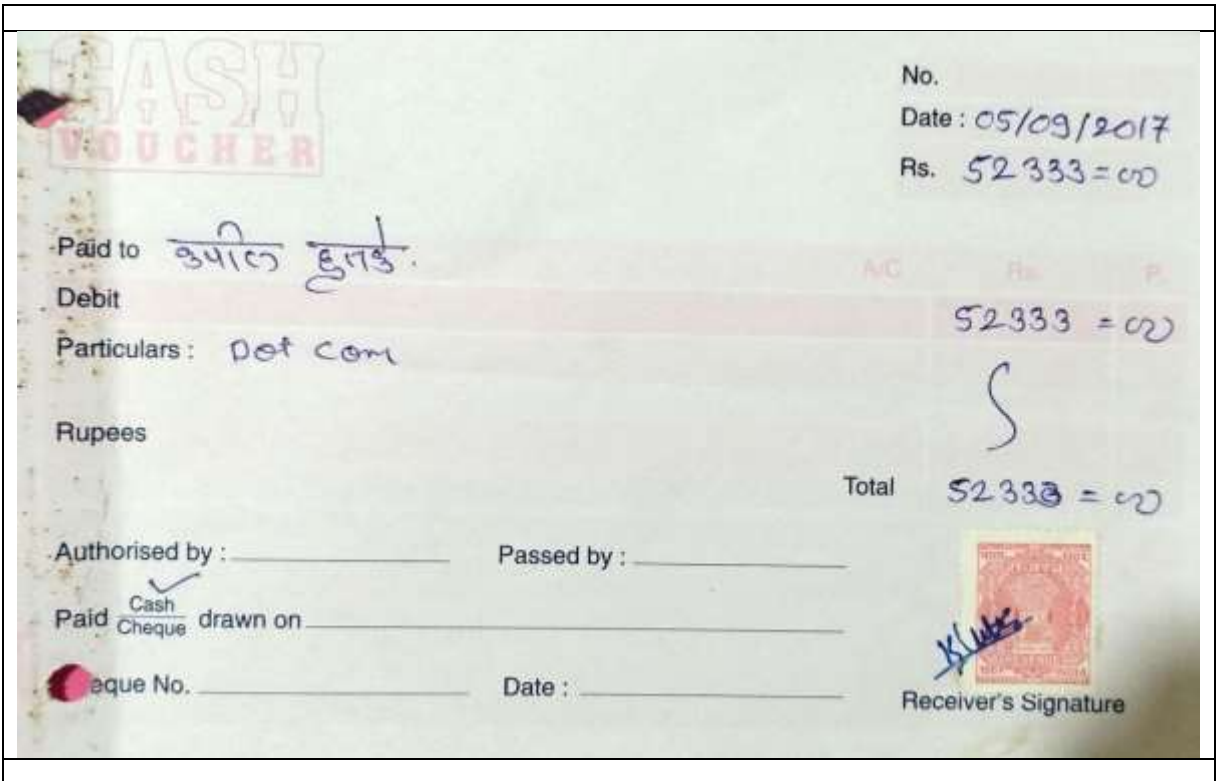 CASH
VOUCHER
No.
Date : 05/09/2017
Rs. 52333=00
Paid to कपील हुलके.
A/C Rs. P.
Debit 52333 = 00
Particulars : Dot com
Rupees
Total 52333 = 00
Authorised by :
Passed by :
Paid Cash
Cheque drawn on
eque No.
Date :
Receiver's Signature